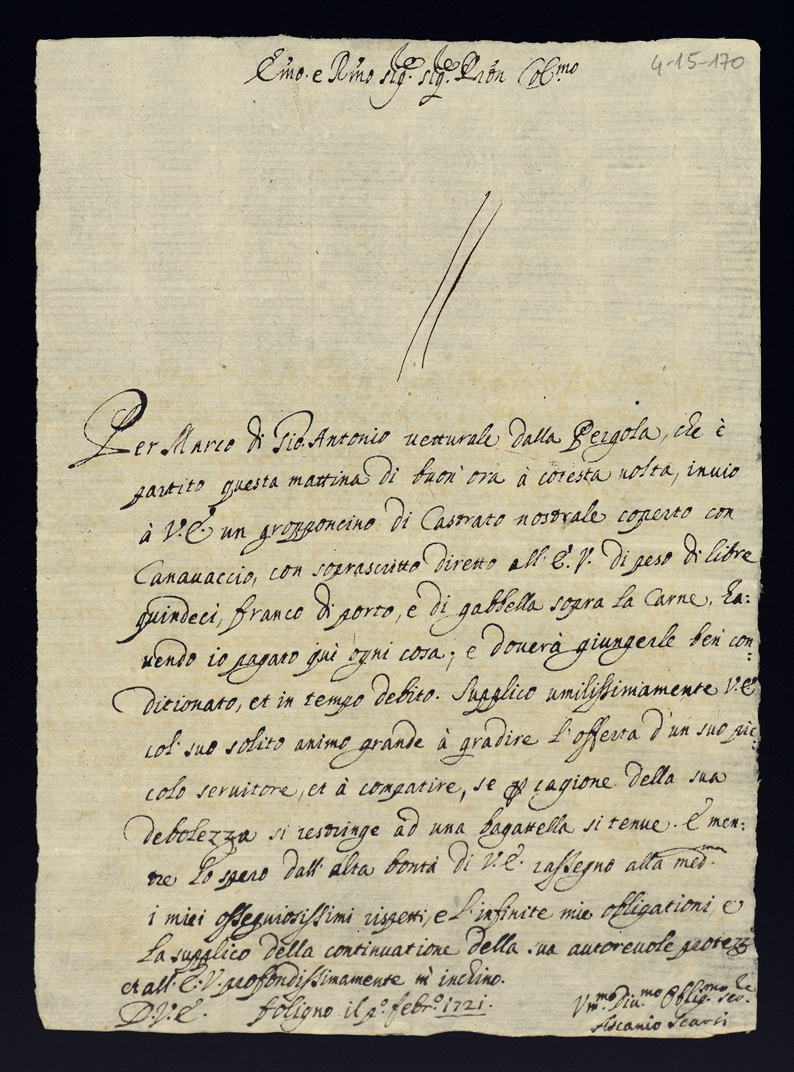 Em̃o. e Rm̃o sigr. sigr. Prõn Colmo
4-15-170
Per Marco di Gio. Antonio vetturale dalla Pergola, che è
partito questa mattina di buon' ora à cotesta volta, invio
à V. E. un gropponcino di Castrato nostrale coperto con
Canavaccio, con soprascritto diretto all' E. V. di peso di libre
quindeci, franco di porto, e di gabbella sopra la Carne, ha:
vendo io pagato qui ogni cosa; e doverà giungerle ben con:
ditionato, et in tempo debito. Supplico umilissimamente V. E.
col' suo solito animo grande à gradire l' offerta d' un suo pic:
colo servitore, et à compatire, se ꝑ cagione della sua
debolezza si restringe ad una bagattella si tenue. E men:
tre lo spero dall' alta bontà di V. E. rassegno alla medma.
i miei ossequiosissimi rispetti, e l' infinite mie obligationi, e
la supplico della continuatione della sua autorevole protezze
et all' E. V. profondissimamente m' inchino.
D. V. E. Foligno il pº. febrº. 1721.
Vmmo. Divmo Obligmo serre
Ascanio Scarsi